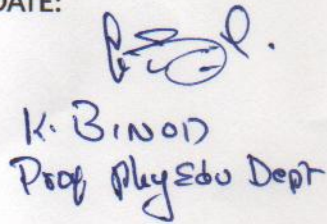 DATE:
K. BINOD
Prof Phy Edu Dept